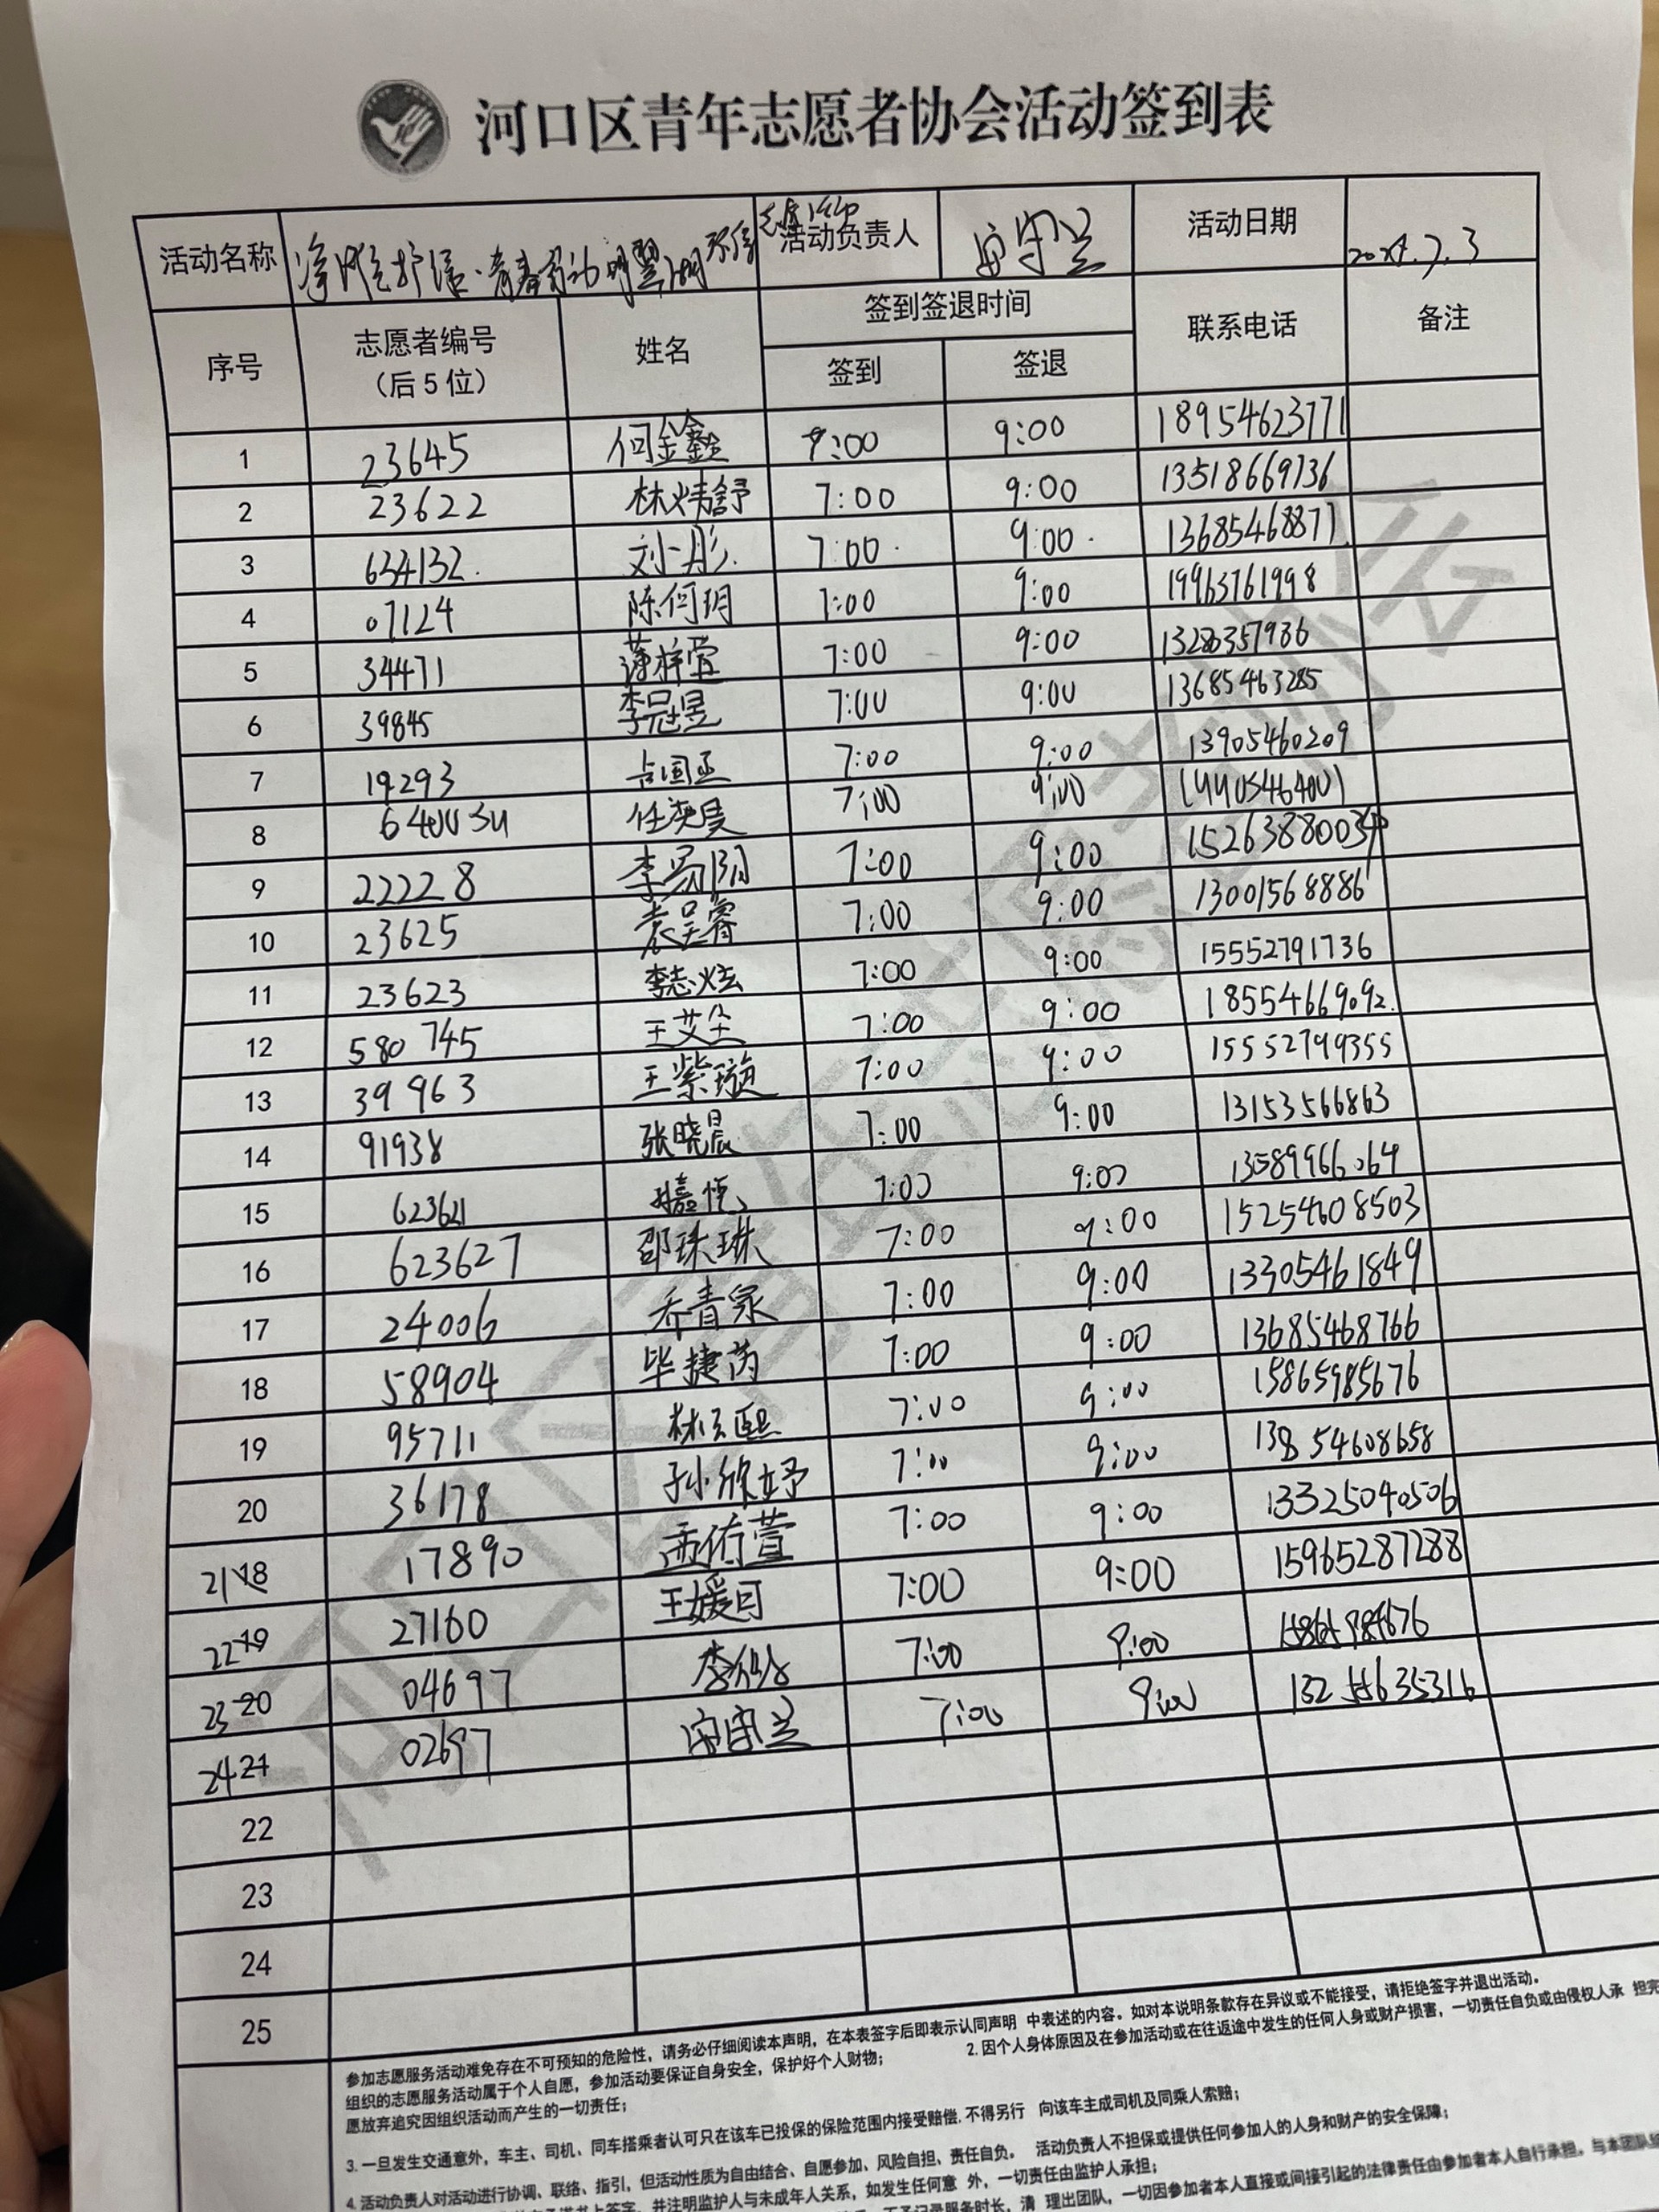 河口区青年志愿者协会活动签到表
活动名称 活动负责人 活动日期 2024.7.3
序号 志愿者编号（后5位） 姓名 签到签退时间 联系电话 备注
签到 签退
1 23645 何金鑫 7:00 9:00 18954623771
2 23622 林炜舒 7:00 9:00 13518669736
3 634132 刘一彤 7:00 9:00 13685468877
4 07124 陈何玥 7:00 9:00 19963761998
5 34471 薄梓萱 7:00 9:00 13280357936
6 39845 李冠昱 7:00 9:00 13685463285
7 19293 7:00 9:00 13905460209
8 任奕旻 7:00 9:00
9 22228 李易阳 7:00 9:00
10 23625 袁昊睿 7:00 9:00 13001568886
11 23623 李志炫 7:00 9:00 15552791736
12 580745 王艾尘 7:00 9:00 18554669092
13 39963 王紫璇 7:00 9:00 15552799355
14 91938 张晓晨 7:00 9:00 13153566863
15 623621 7:00 9:00 13589966064
16 623627 邵珠琳 7:00 9:00 15254608503
17 24006 乔青家 7:00 9:00 13305461849
18 58904 毕捷芮 7:00 9:00 13685468766
19 95711 7:00 9:00 15865985676
20 36178 孙欣妤 7:00 9:00 13854608658
21 18 17890 孟侑萱 7:00 9:00 13325040506
22 19 27160 王媛可 7:00 9:00 15965287288
23 20 04697 7:00 9:00
24 21 02697 7:00 9:00
22
23
24
25
参加志愿服务活动难免存在不可预知的危险性，请务必仔细阅读本声明，在本表签字后即表示认同声明 中表述的内容。如对本说明条款存在异议或不能接受，请拒绝签字并退出活动。
组织的志愿服务活动属于个人自愿，参加活动要保证自身安全，保护好个人财物； 2.因个人身体原因及在参加活动或在往返途中发生的任何人身或财产损害，一切责任自负或由侵权人承 担完
愿放弃追究因组织活动而产生的一切责任；
3.一旦发生交通意外，车主、司机、同车搭乘者认可只在该车已投保的保险范围内接受赔偿,不得另行 向该车主成司机及同乘人索赔；
4.活动负责人对活动进行协调、联络、指引，但活动性质为自由结合、自愿参加、风险自担、责任自负。 活动负责人不担保或提供任何参加人的人身和财产的安全保障；
签字，并注明监护人与未成年人关系，如发生任何意 外，一切责任由监护人承担；
清 理出团队，一切因参加者本人直接或间接引起的法律责任由参加者本人自行承担，与本团队